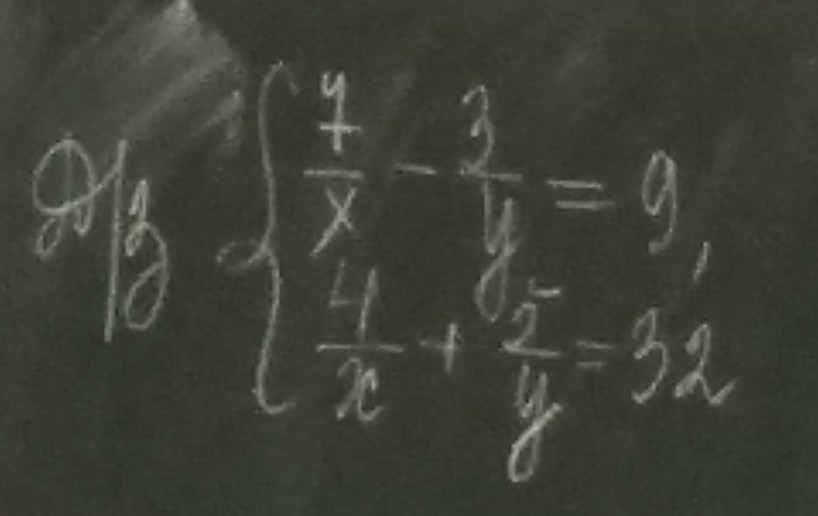 Д/з { 7/x - 3/y = 9,
4/x + 5/y = 32